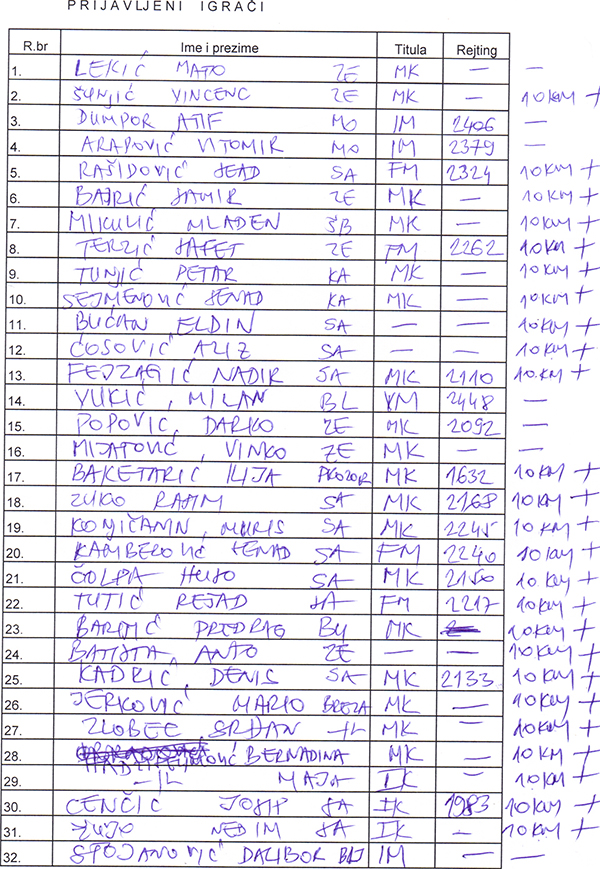 PRIJAVLJENI IGRAČI
R.br Ime i prezime Titula Rejting
1. LEKIĆ MATO ZE MK — —
2. ŠUNJIĆ VINCENC ZE MK — 10KM +
3. DUMPOR ATIF MO IM 2406 —
4. ARAPOVIĆ VITOMIR MO IM 2379 —
5. RAŠIDOVIĆ SEAD SA FM 2324 10KM +
6. BAJRIĆ SAMIR ZE MK — 10KM +
7. MIKULIĆ MLADEN ŠB MK — 10KM +
8. TERZIĆ SAFET ZE FM 2262 10KM +
9. TUNJIĆ PETAR KA MK — 10KM +
10. SEJMENOVIĆ SENAD KA MK — 10KM +
11. BUĆAN ELDIN SA — — 10KM +
12. ĆOSOVIĆ AZIZ SA — — 10KM +
13. FEJZAGIĆ NADIR SA MK 2110 10KM +
14. VUKIĆ, MILAN BL VM 2448 —
15. POPOVIĆ, DARKO ZE MK 2092 —
16. MIJATOVIĆ, VINKO ZE MK — —
17. BAKETARIĆ ILIJA PROZOR MK 1632 10KM +
18. ZUKO RASIM SA MK 2168 10KM +
19. KONJIČANIN, MURIS SA MK 2245 10KM +
20. KAMBEROVIĆ SENAD SA FM 2240 10KM +
21. ČOLPA SA MK 10KM +
22. TUTIĆ REJAD SA FM 2217 10KM +
23. PREDRAG MK 10KM +
24. BATISTA, ANTO ZE — — 10KM +
25. KADRIĆ, DENIS SA MK 2133 10KM +
26. JERKOVIĆ MARIO BREZA MK — 10KM +
27. SRĐAN -||- MK — 10KM +
28. BERNADINA MK — 10KM +
29. -||- MAJA IK — 10KM +
30. CENČIĆ JOSIP SA IK 1983 10KM +
31. NEDIM SA IK — 10KM +
32. STOJANOVIĆ DALIBOR IM — —